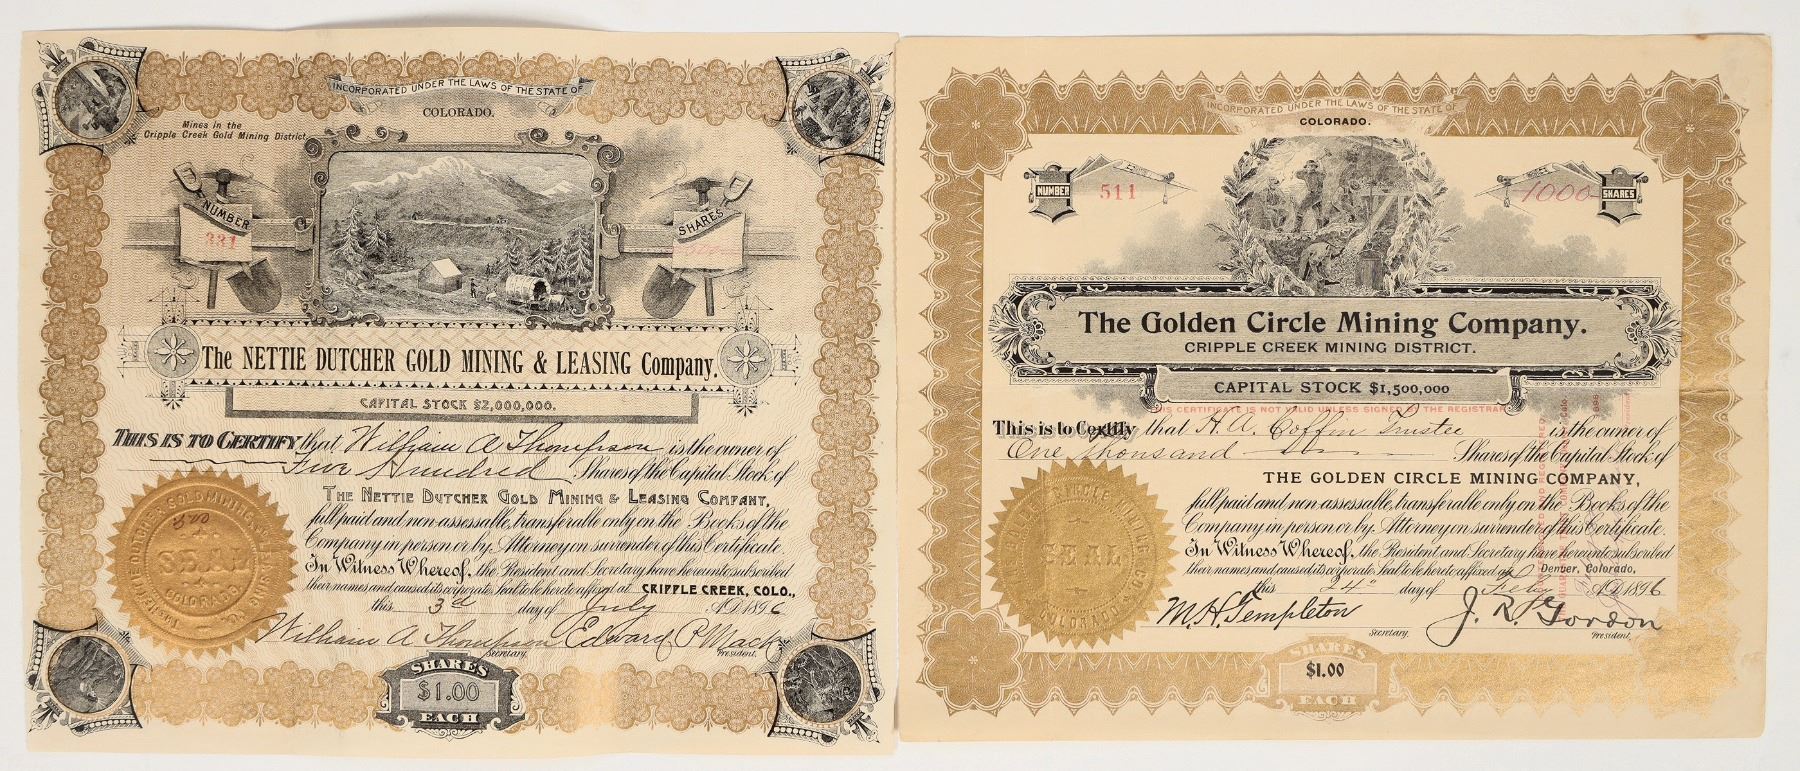 INCORPORATED UNDER THE LAWS OF THE STATE OF
COLORADO.
Mines in the
Cripple Creek Gold Mining District.
NUMBER
331
SHARES
The NETTIE DUTCHER GOLD MINING & LEASING Company.
CAPITAL STOCK $2,000,000.
THIS IS TO CERTIFY that William A Thompson is the owner of
Five Hundred Shares of the Capital Stock of
THE NETTIE DUTCHER GOLD MINING & LEASING COMPANY,
full paid and non-assessable, transferable only on the Books of the
Company in person or by Attorney on surrender of this Certificate.
In Witness Whereof, the President and Secretary have hereunto subscribed
their names and caused its corporate Seal to be hereto affixed at CRIPPLE CREEK, COLO.,
this 3rd day of July A.D. 1896
SEAL
COLORADO
William A Thompson Edward P Mack
Secretary. President.
SHARES
$1.00
EACH
INCORPORATED UNDER THE LAWS OF THE STATE OF
COLORADO.
NUMBER
511
1000
SHARES
The Golden Circle Mining Company.
CRIPPLE CREEK MINING DISTRICT.
CAPITAL STOCK $1,500,000
THIS CERTIFICATE IS NOT VALID UNLESS SIGNED BY THE REGISTRAR
This is to Certify that H.A. Coffin Trustee is the owner of
One thousand Shares of the Capital Stock of
THE GOLDEN CIRCLE MINING COMPANY,
full paid and non-assessable, transferable only on the Books of the
Company in person or by Attorney on surrender of this Certificate.
In Witness Whereof, the President and Secretary have hereunto subscribed
their names and caused its corporate Seal to be hereto affixed at Denver, Colorado,
this 24" day of Feby A.D. 1896
SEAL
COLORADO
M. H. Templeton J. R. Gordon
Secretary. President.
SHARES
$1.00
EACH